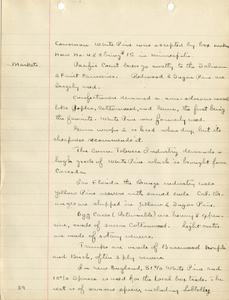 Canadian White Pine was accepted by Box makers
Markets
Pacific Coast Boxes go mostly to the Salmon
& Fruit Canneries. Redwood & Sugar Pine are
largely used.
Confectioners demand a non-odorous wood
like Poplar, Cottonwood, and Gum, the first being
the favorite. White Pine was formerly used.
Gum warps & is hard when dry, but its
cheapness recommends it.
The Conn. Tobacco Industry demands a
high grade of White Pine which is brought from
Canada.
In Florida the Orange industry uses
Yellow Pine veneers with sawed ends. Cal. Or-
anges are shipped in yellow & Sugar Pine.
Egg Cases (Returnable) are heavy & expen-
sive, made of sawn Cottonwood. Light crates
are made of rotary veneer.
Trunks are made of Basswood Maple
and Birch, often 3 ply veneer.
In New England, 51% White Pine and
10% Spruce is used for the local box trade. The
rest is of various species including Loblolly